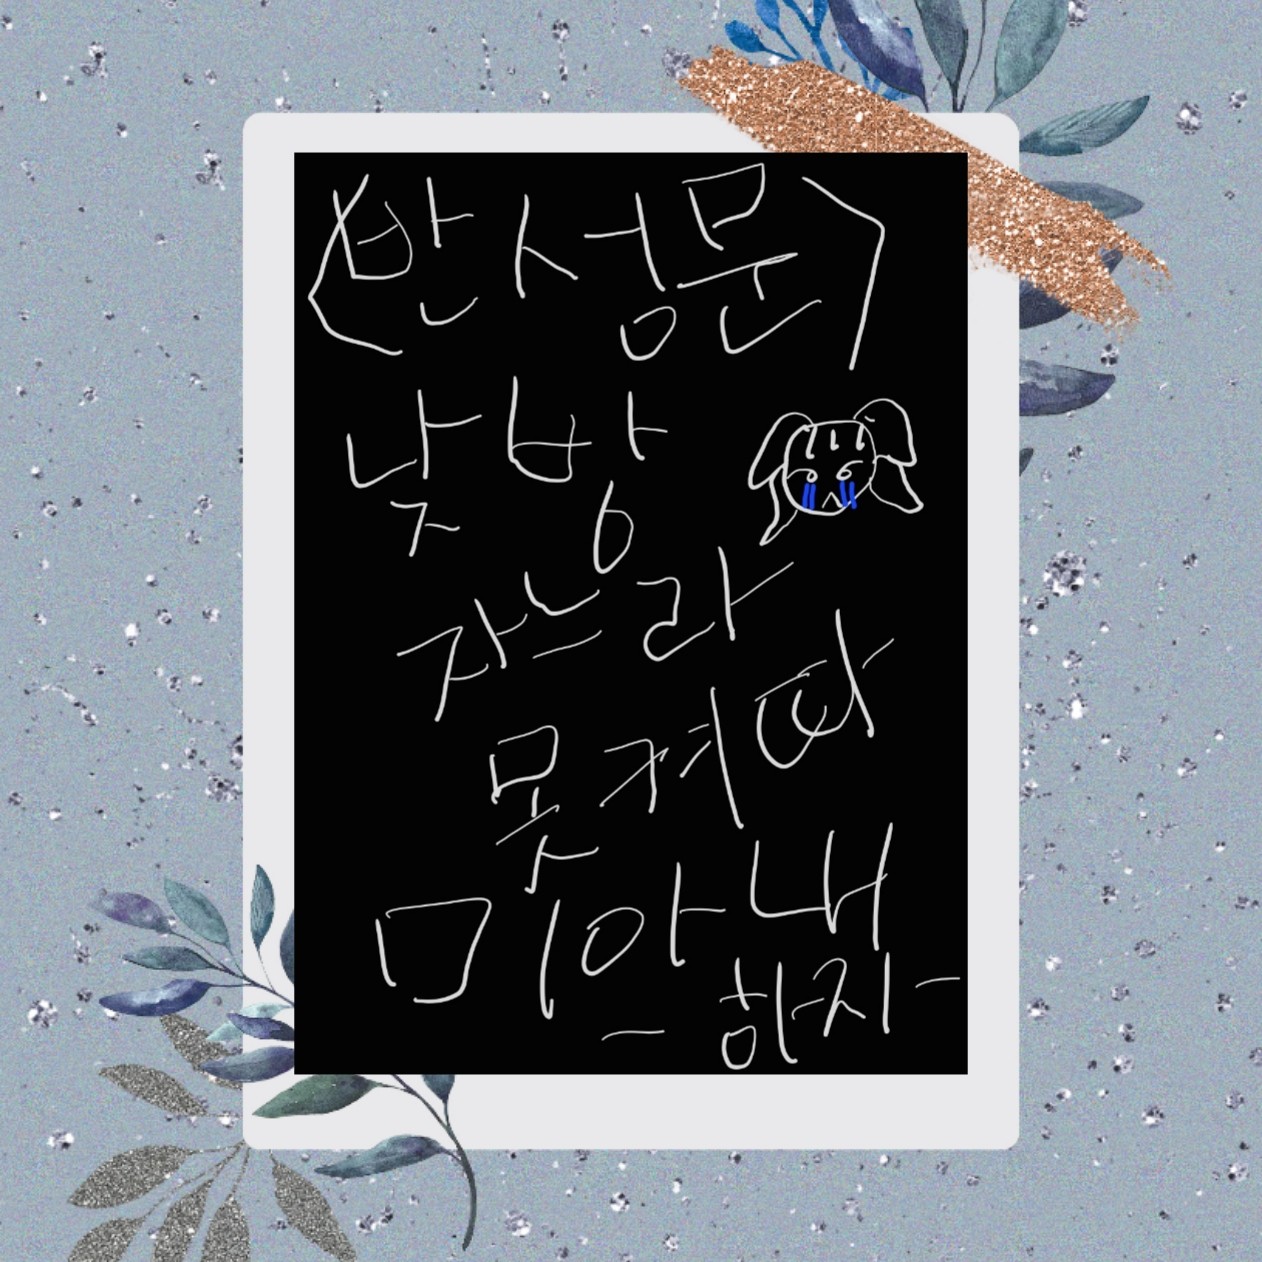 <반성문>
낮방
자느라
못켜따
미아내
- 하지 -